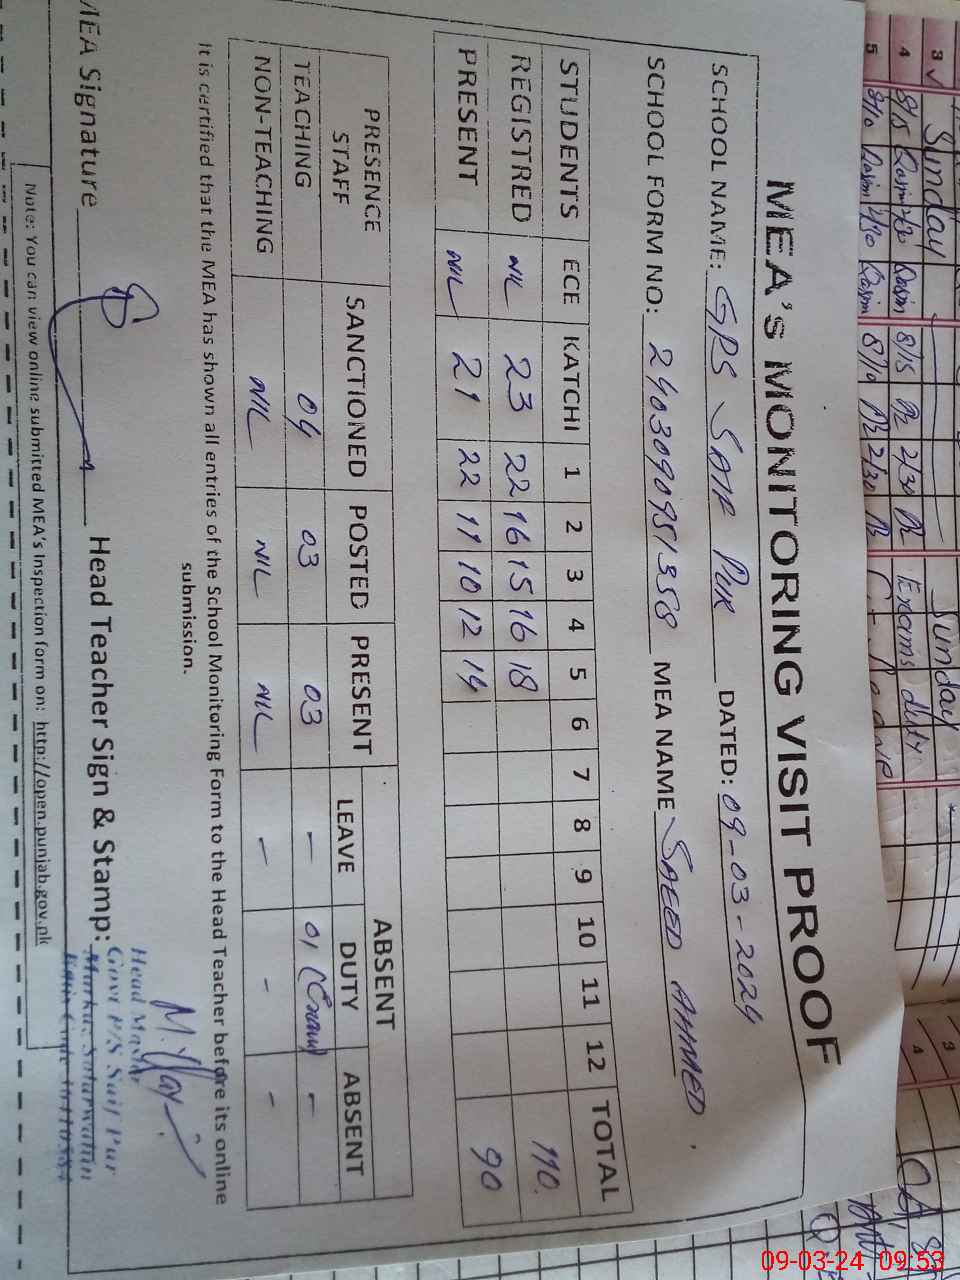 MEA's MONITORING VISIT PROOF
SCHOOL NAME: GPS SAIF PUR DATED: 09-03-2024
SCHOOL FORM NO: MEA NAME SAEED AHMED
STUDENTS ECE KATCHI 1 2 3 4 5 6 7 8 9 10 11 12 TOTAL
REGISTRED NIL 23 22 16 15 16 18 110
PRESENT NIL 21 22 11 10 12 14 90
PRESENCE STAFF SANCTIONED POSTED PRESENT ABSENT
LEAVE DUTY ABSENT
TEACHING 04 03 03 - 01 (Exam) -
NON-TEACHING NIL NIL NIL - - -
It is certified that the MEA has shown all entries of the School Monitoring Form to the Head Teacher before its online
submission.
MEA Signature Head Teacher Sign & Stamp:
Head Master
Govt P/S Saif Pur
Note: You can view online submitted MEA's Inspection form on: http://open.punjab.gov.pk
Sunday
Sunday
Exams duty
3
4 8/15 Qasim 2/30 Qasim 8/15 2/30
5 8/10 Qasim 2/30 Qasim 8/10 2/30
09-03-24 09:53